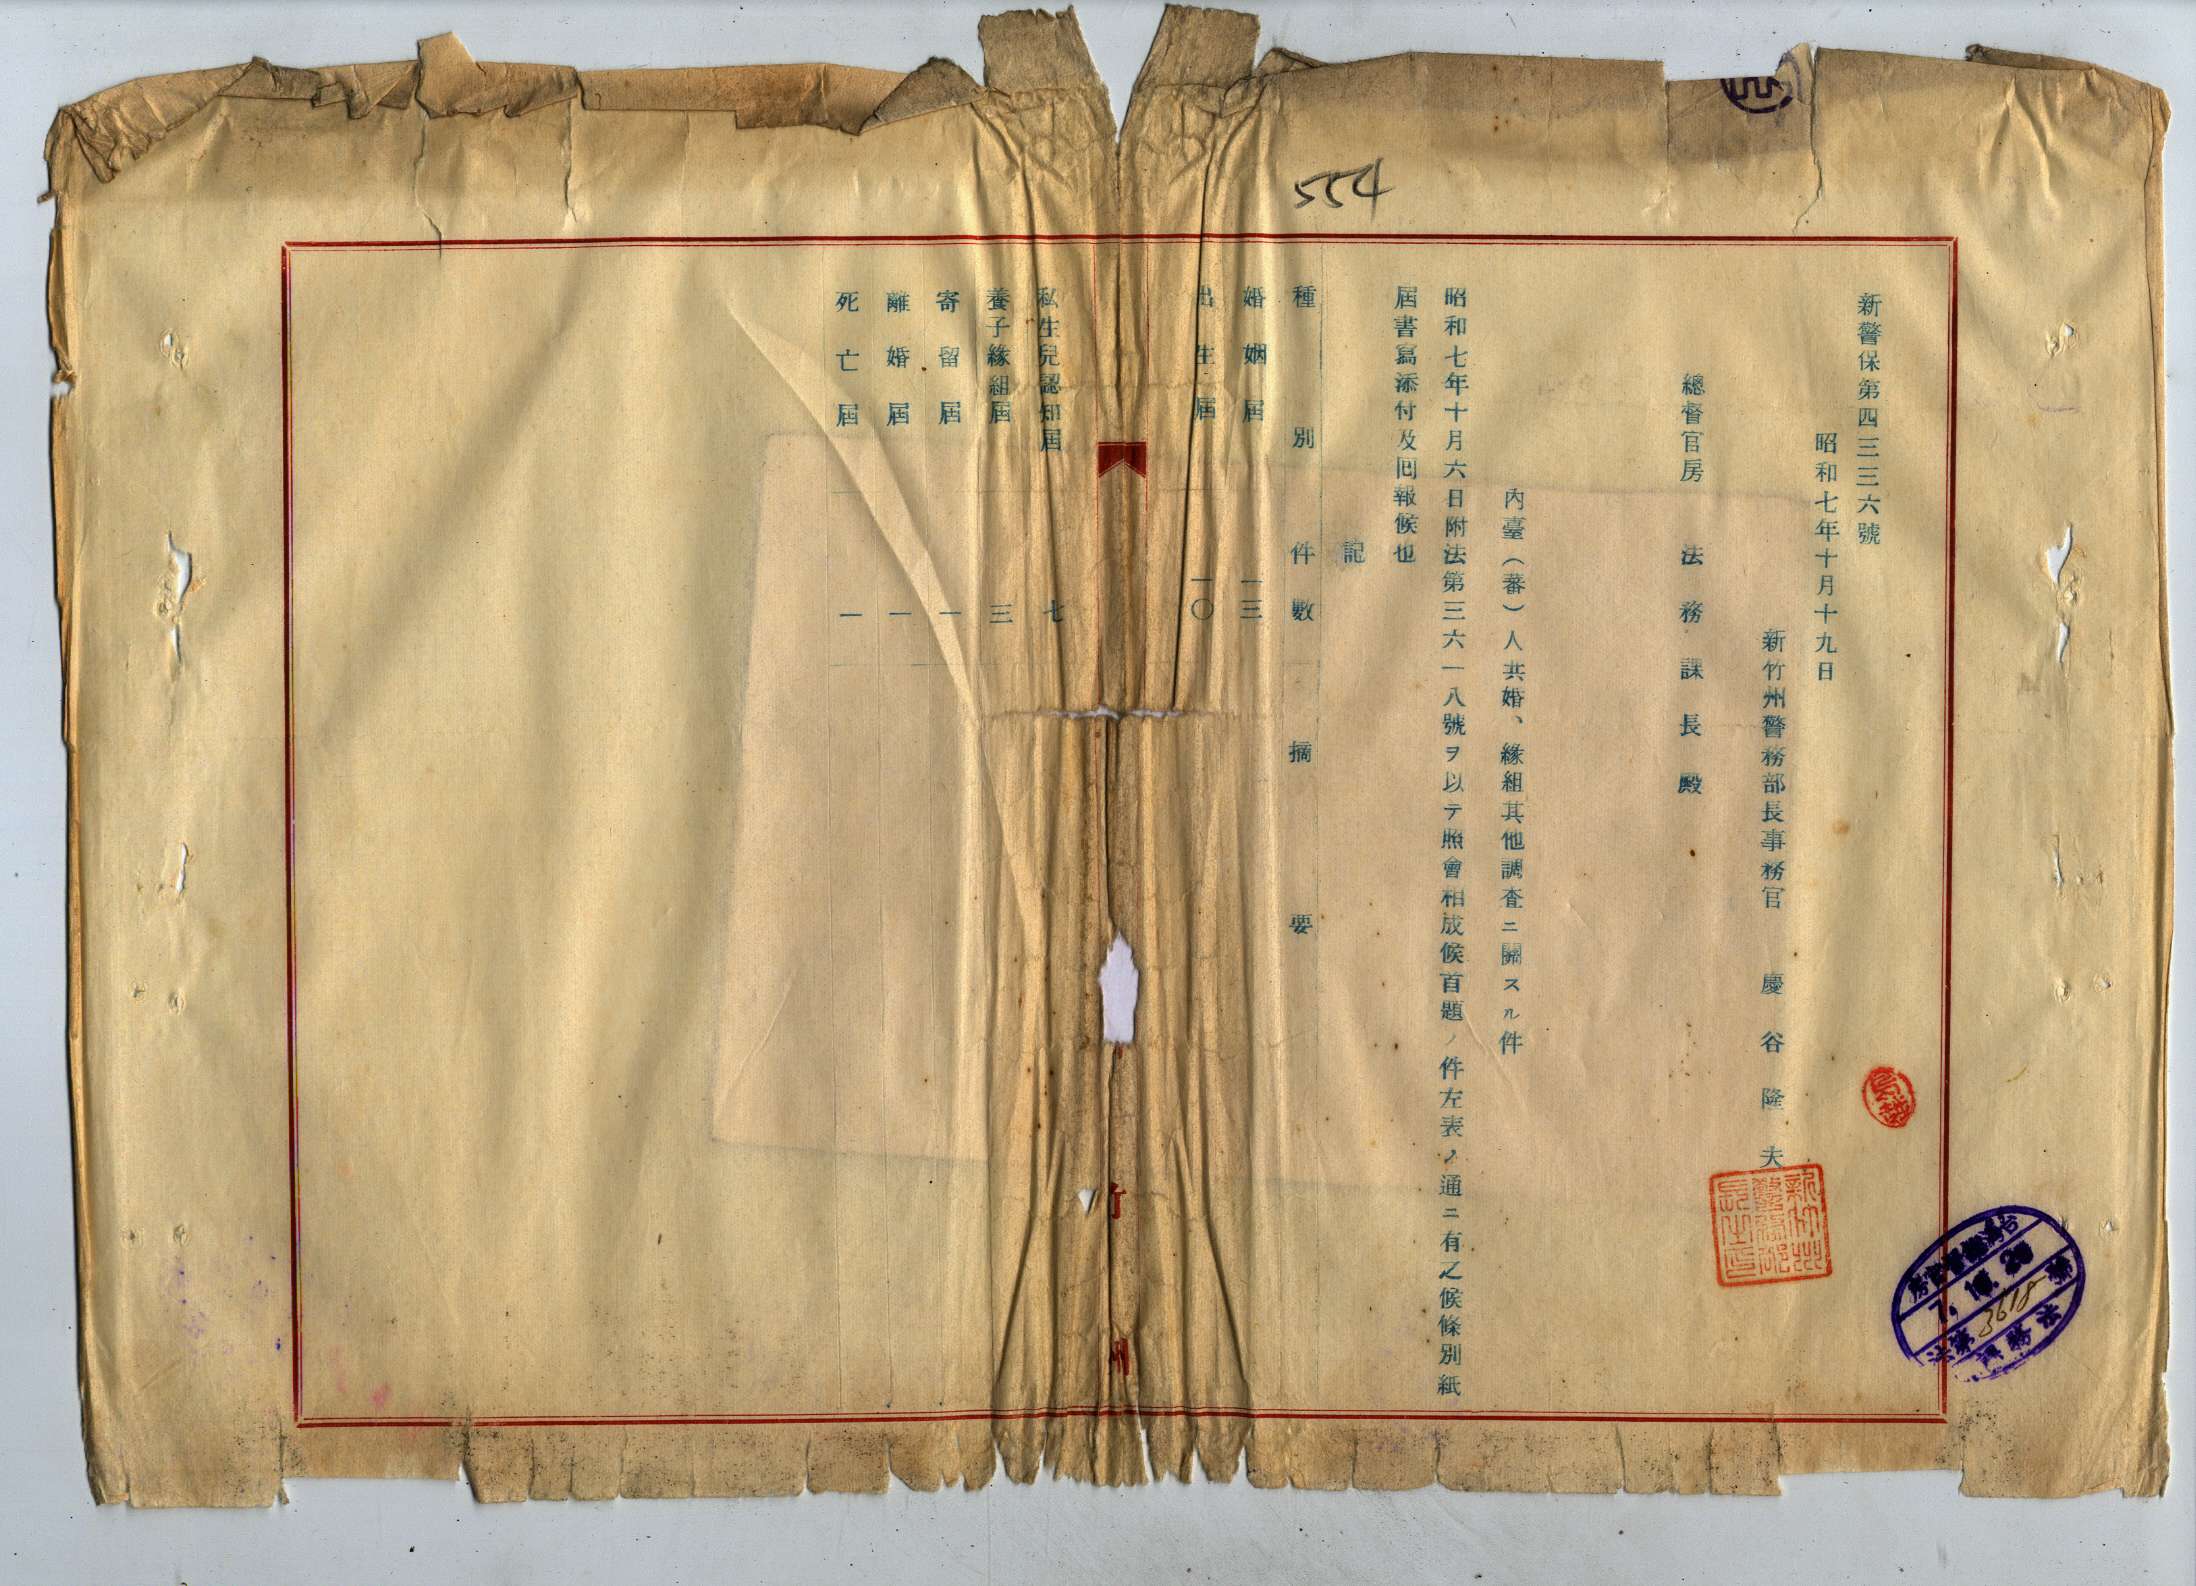 554
新警保第四三三六號
昭和七年十月十九日
新竹州警務部長事務官 慶谷隆夫
新竹州警務部長之印
總督官房 法務課長殿
內臺(蕃)人共婚、緣組其他調査ニ關スル件
昭和七年十月六日附法第三六一八號ヲ以テ照會相成候首題ノ件左表ノ通ニ有之候條別紙
屆書寫添付及囘報候也
記
種別 件數 摘要
婚姻屆 一三
出生屆 一〇
竹 州
私生兒認知屆 七
養子緣組屆 三
寄留屆 一
離婚屆 一
死亡屆 一
台灣總督官房
7. 10. 20
法第3618號
法務課